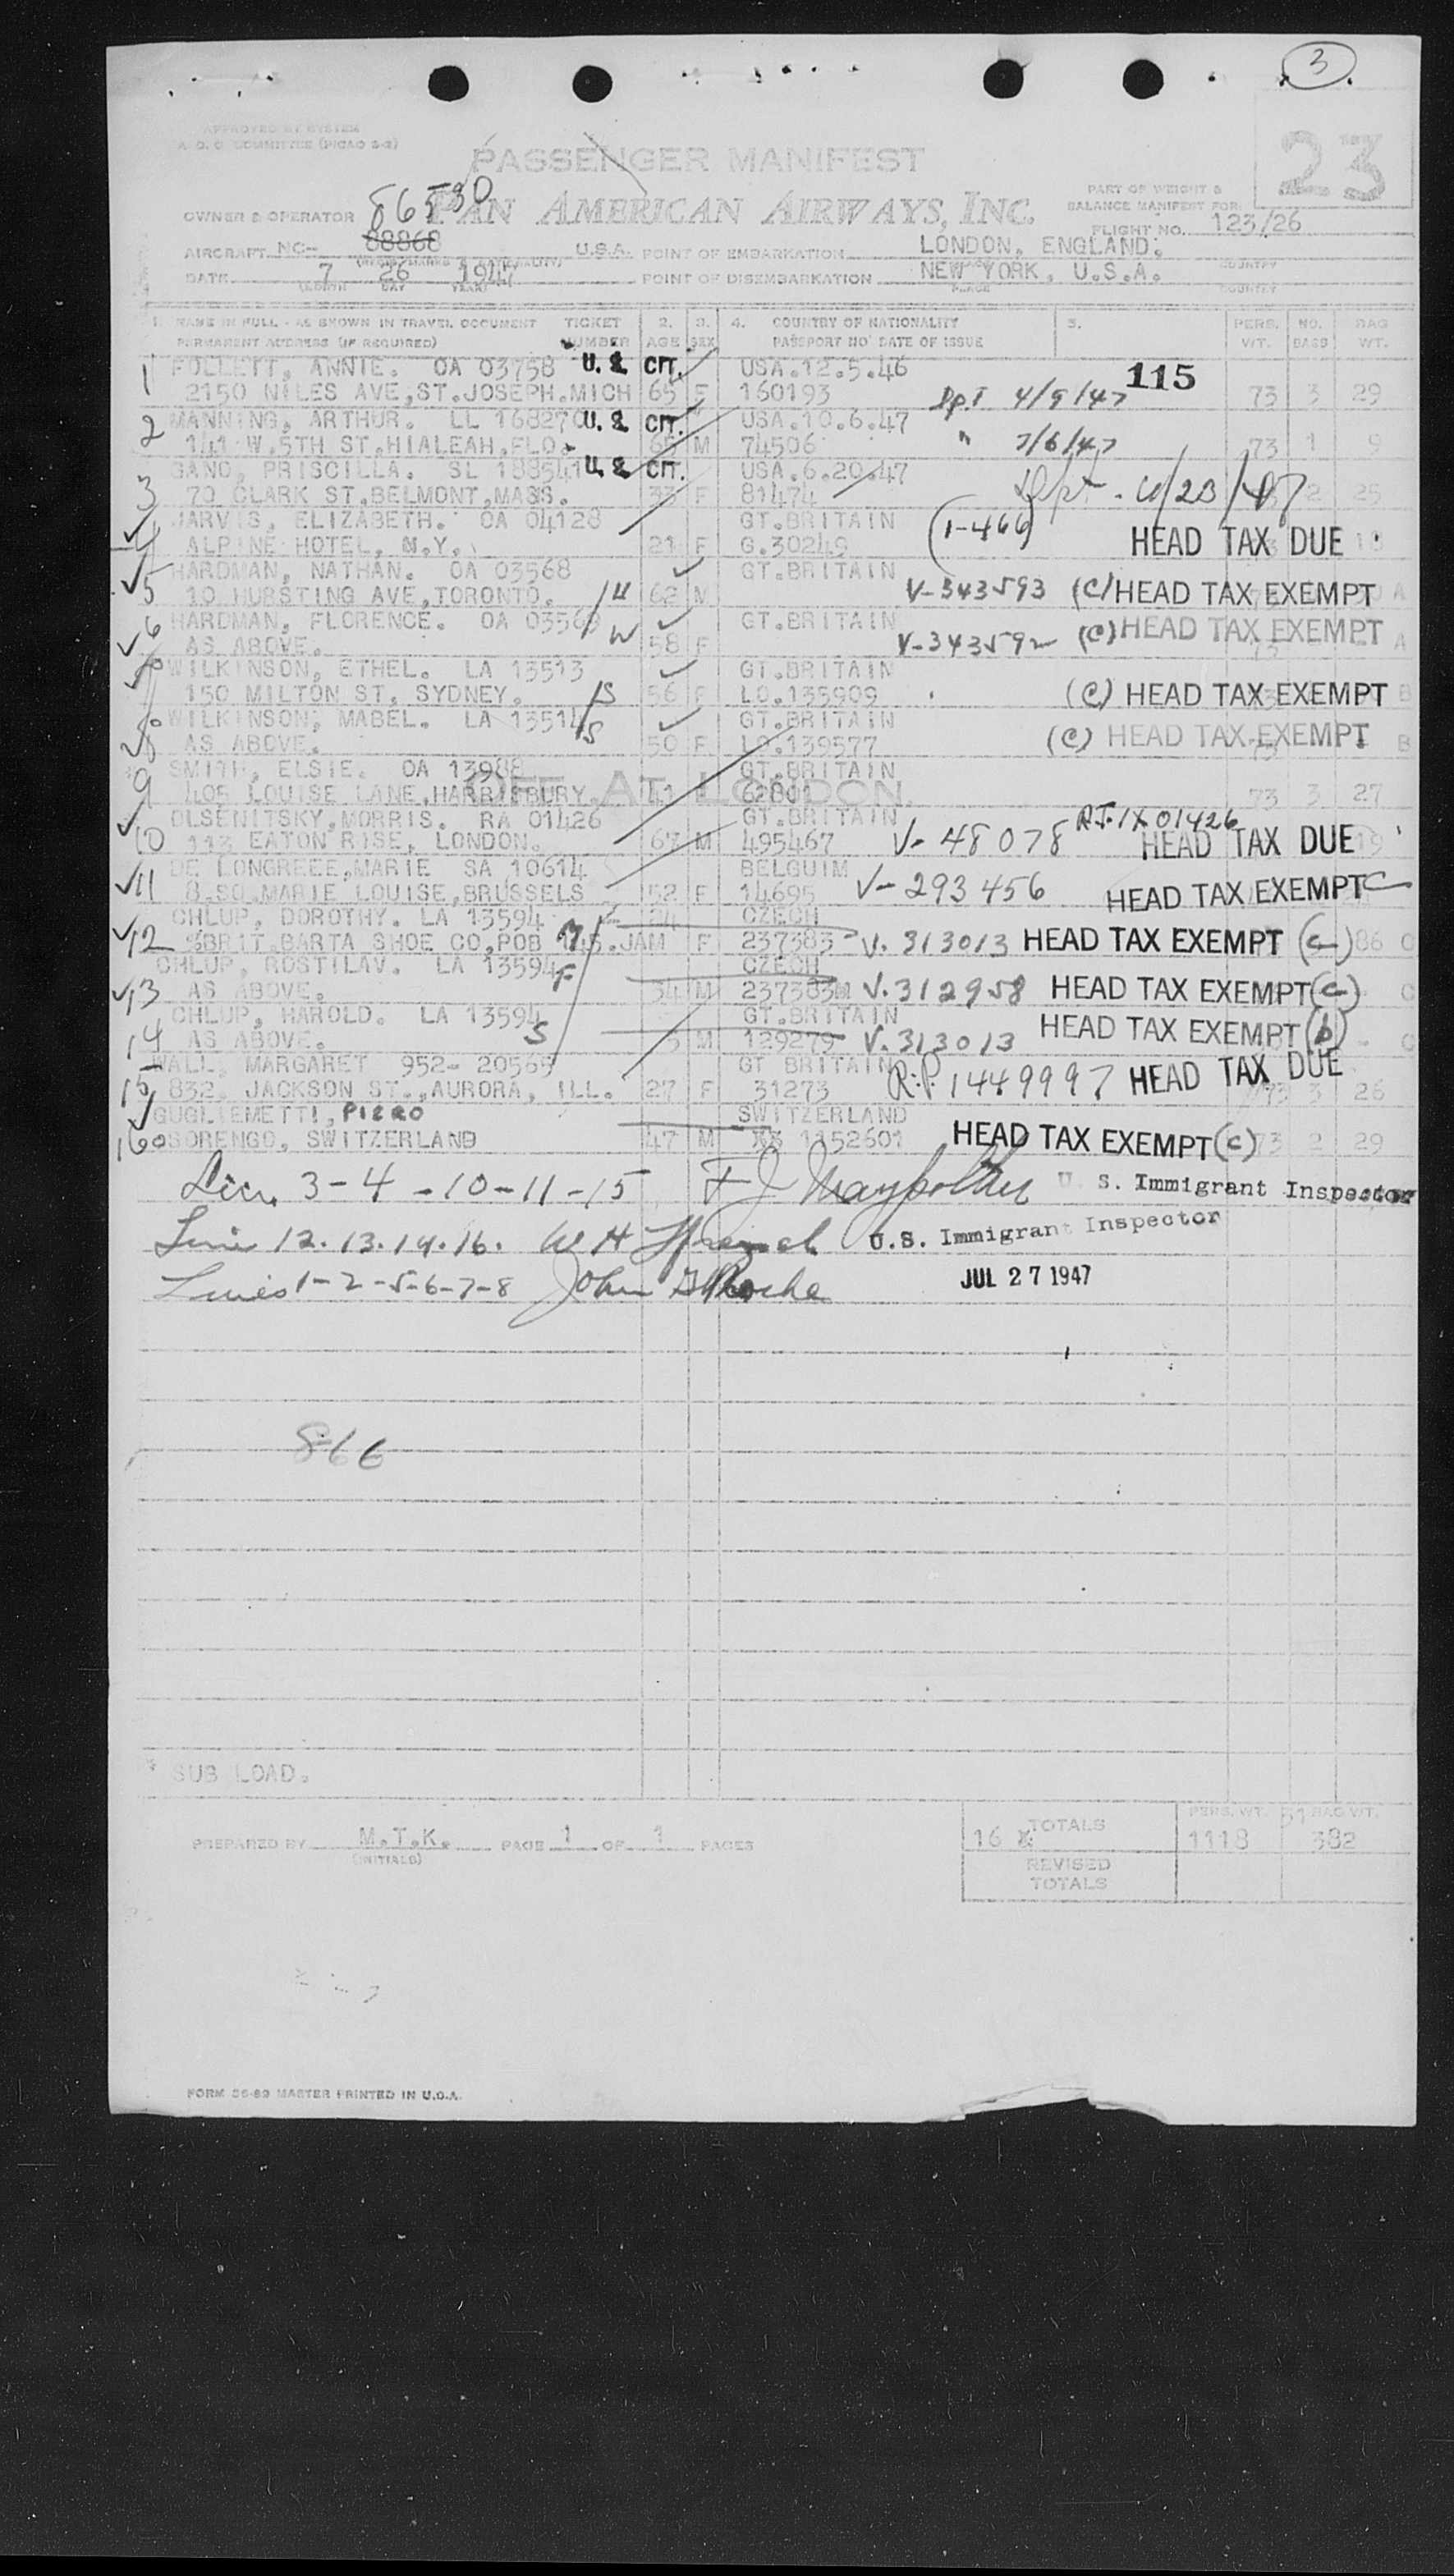 3
APPROVED BY SYSTEM
A. O. C. COMMITTEE (PICAO 2-3)
PASSENGER MANIFEST
23
PART OF WEIGHT &
BALANCE MANIFEST FOR:
OWNER & OPERATOR PAN AMERICAN AIRWAYS, INC.
86530
FLIGHT NO. 123/26
AIRCRAFT NC- 88868 U.S.A. POINT OF EMBARKATION LONDON, ENGLAND.
COUNTRY
DATE 7 26 1947 POINT OF DISEMBARKATION NEW YORK, U.S.A.
MONTH DAY YEAR PLACE COUNTRY
1. NAME IN FULL - AS SHOWN IN TRAVEL DOCUMENT TICKET 2. 3. 4. COUNTRY OF NATIONALITY 5. PERS. NO. BAG
PERMANENT ADDRESS (IF REQUIRED) NUMBER AGE SEX PASSPORT NO' DATE OF ISSUE WT. BAGS WT.
1 FOLLETT, ANNIE. OA 03758 U. S. CIT. USA.12.5.46 115
2150 NILES AVE,ST.JOSEPH.MICH 65 F 160193 Dpt 4/9/47 73 3 29
2 MANNING, ARTHUR. LL 168270 U. S. CIT. USA.10.6.47
141 W.5TH ST.HIALEAH.FLO. 65 M 74506 " 7/6/47 73 1 9
3 GANO, PRISCILLA. SL 188541 U. S. CIT. USA.6.20.47
79 CLARK ST.BELMONT,MASS. 33 F 81474 Dept. 6/23/47 2 25
4 JARVIS, ELIZABETH. OA 04128 GT.BRITAIN (1-466)
ALPINE HOTEL, N.Y. 21 F G.30249 HEAD TAX DUE
5 HARDMAN, NATHAN. OA 03568 GT.BRITAIN
10 HURSTING AVE,TORONTO. H 62 M V-343593 (C) HEAD TAX EXEMPT A
6 HARDMAN, FLORENCE. OA 03569 GT.BRITAIN
AS ABOVE. W 58 F V-343592 (C) HEAD TAX EXEMPT A
7 WILKINSON, ETHEL. LA 13513 GT.BRITAIN
150 MILTON ST. SYDNEY. S 56 F LO.135909 (C) HEAD TAX EXEMPT B
8 WILKINSON, MABEL. LA 13514 S GT.BRITAIN
AS ABOVE. 50 F LO.139577 (C) HEAD TAX EXEMPT B
9 SMITH, ELSIE. OA 13988 GT.BRITAIN
405 LOUISE LANE,HARRISBURY. 41 F 62801 73 3 27
OFF AT LONDON.
10 OLSENITSKY,MORRIS. RA 01426 GT.BRITAIN
113 EATON RISE, LONDON. 67 M 495467 V-48078 HEAD TAX DUE 19
11 DE LONGREEE,MARIE SA 10614 BELGUIM
8.SQ.MARIE LOUISE,BRUSSELS 52 F 14695 V-293456 HEAD TAX EXEMPT C
12 CHLUP, DOROTHY. LA 13594 24 CZECH
%BRIT.BARTA SHOE CO,POB 145.JAM F 237383 V. 313013 HEAD TAX EXEMPT (C) 86 C
13 CHLUP, ROSTILAV. LA 13594 F CZECH
AS ABOVE. 34 M 237383 V.312958 HEAD TAX EXEMPT (C) C
14 CHLUP, HAROLD. LA 13594 S GT.BRITAIN
AS ABOVE. M 129279 V.313013 HEAD TAX EXEMPT (b) C
15 WALL, MARGARET 952- 20569 GT BRITAIN
832. JACKSON ST.,AURORA, ILL. 27 F 31273 R.P. 1449997 HEAD TAX DUE 73 3 26
16 GUGLIEMETTI, PIERO SWITZERLAND
SORENGO, SWITZERLAND 47 M 1152601 HEAD TAX EXEMPT (C) 73 2 29
3-4-10-11-15 U. S. Immigrant Inspector
Line 12.13.14.16. W H U.S. Immigrant Inspector
Lines 1-2-5-6-7-8 John Roche JUL 27 1947
866
* SUB LOAD.
PREPARED BY M.T.K. PAGE 1 OF 1 PAGES
(INITIALS)
TOTALS PERS. WT. 31 BAG WT.
16 1118 382
REVISED
TOTALS
FORM 36-89 MASTER PRINTED IN U.S.A.